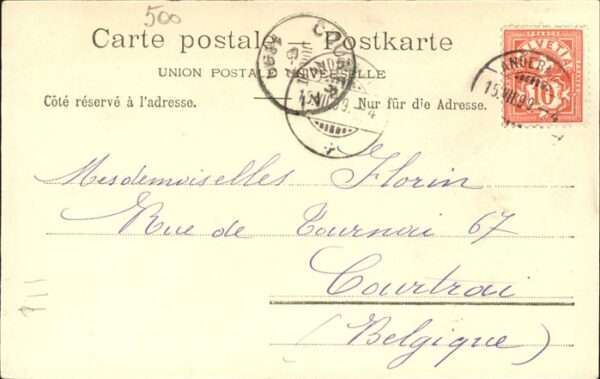 500
Carte postale. Postkarte
UNION POSTALE UNIVERSELLE
Côté réservé à l'adresse. Nur für die Adresse.
HELVETIA
10
ANDERM
15.VII.99
Mesdemoiselles Florin
Rue de Tournai 67
Courtrai
(Belgique)